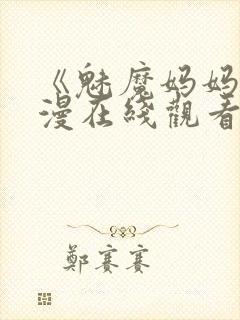 《魅魔妈妈
漫在线觀看
鄭賽賽